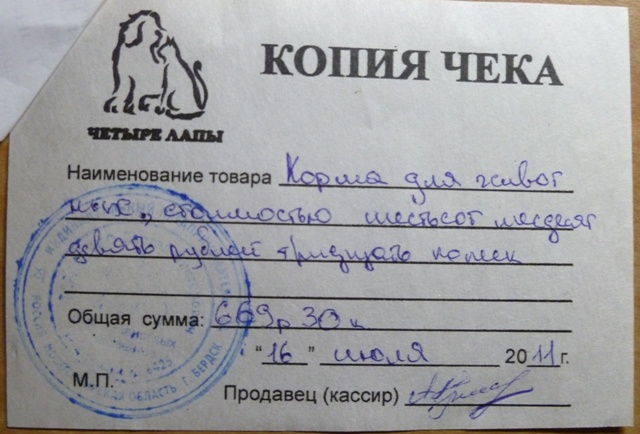 КОПИЯ ЧЕКА
ЧЕТЫРЕ ЛАПЫ
Наименование товара Корма для живот
ных, стоимостью шестьсот шесдесят
девять рублей тридцать копеек
Общая сумма: 669р 30к
"16" июля 2011г.
М.П.
Продавец (кассир)
РОССИЯ НОВОСИБИРСКАЯ ОБЛАСТЬ Г. БЕРДСК